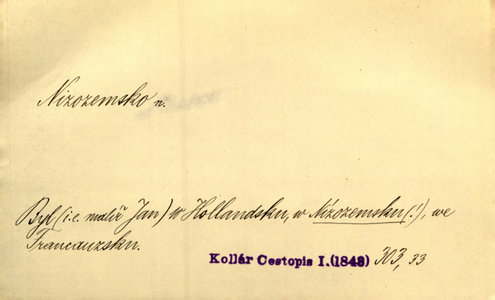 Nizozemsko n.
Byl (i.e. malíř Jan) w Hollandsku, w Nizozemsku (!), we
Francauzsku.
Kollár Cestopis I.(1843) 303, 33